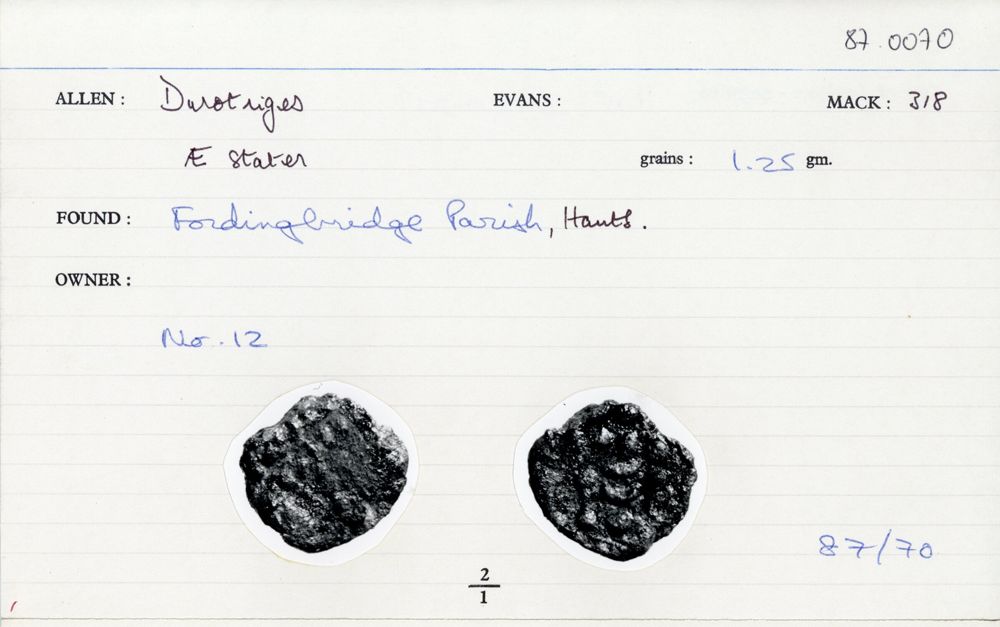 87.0070
ALLEN: Durotriges EVANS: MACK: 318
Æ Stater grains: 1.25 gm.
FOUND: Fordingbridge Parish, Hants.
OWNER:
No. 12
87/70
2
1